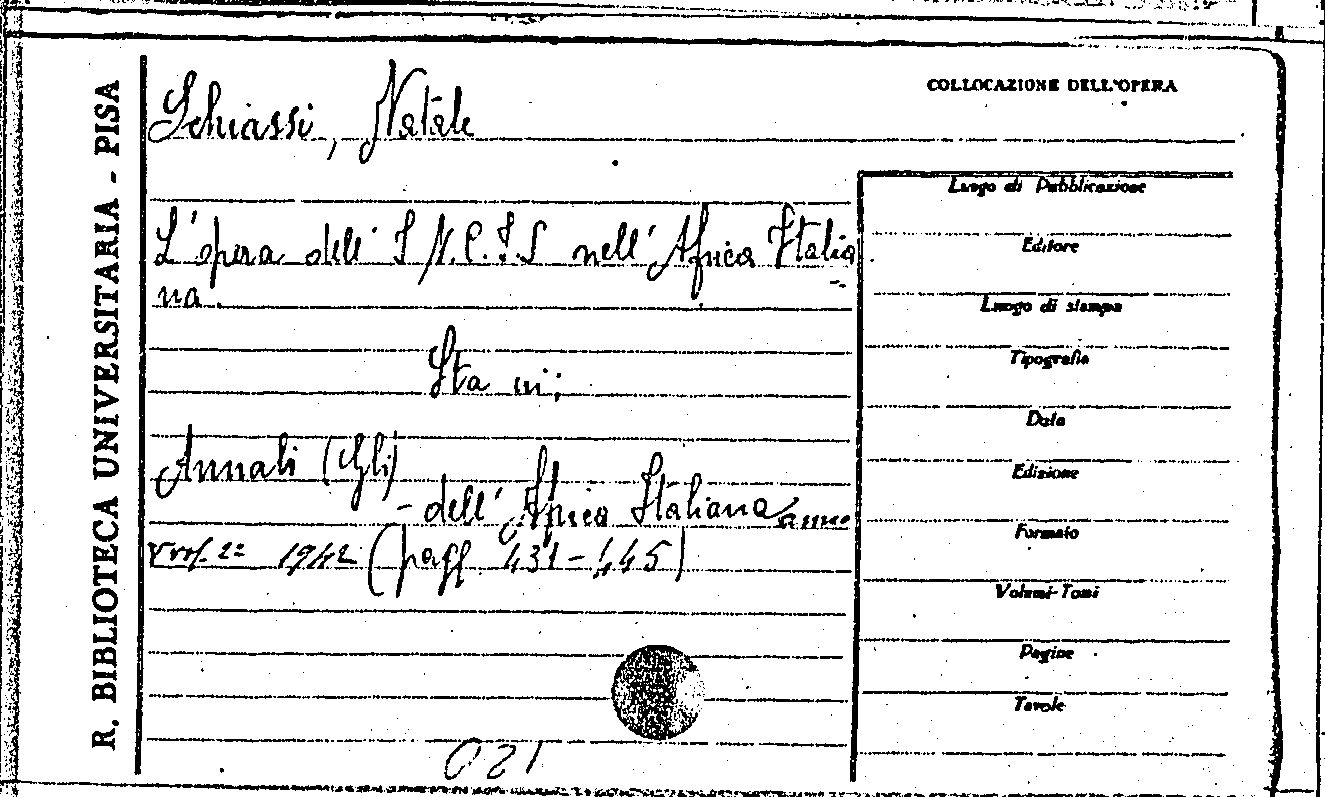 R. BIBLIOTECA UNIVERSITARIA - PISA
COLLOCAZIONE DELL'OPERA
Schiassi, Natale
L'opera dell' I.N.C.I.S nell'Africa Italia-
na.
Sta in:
Annali (Gli)
- dell'Africa Italiana anno
V vol. 2º 1942 (pagg. 431-445)
021
Luogo di Pubblicazione
Editore
Luogo di stampa
Tipografia
Data
Edizione
Formato
Volumi-Tomi
Pagine
Tavole